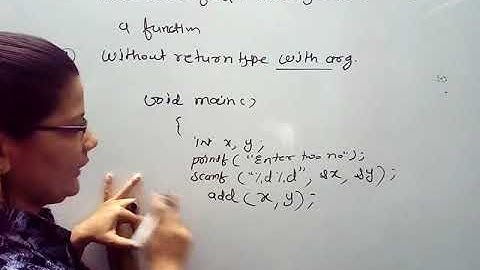 a function
without return type with arg.
void main()
{
int x, y;
printf("Enter two no");
scanf("%d%d", &x, &y);
add(x, y);